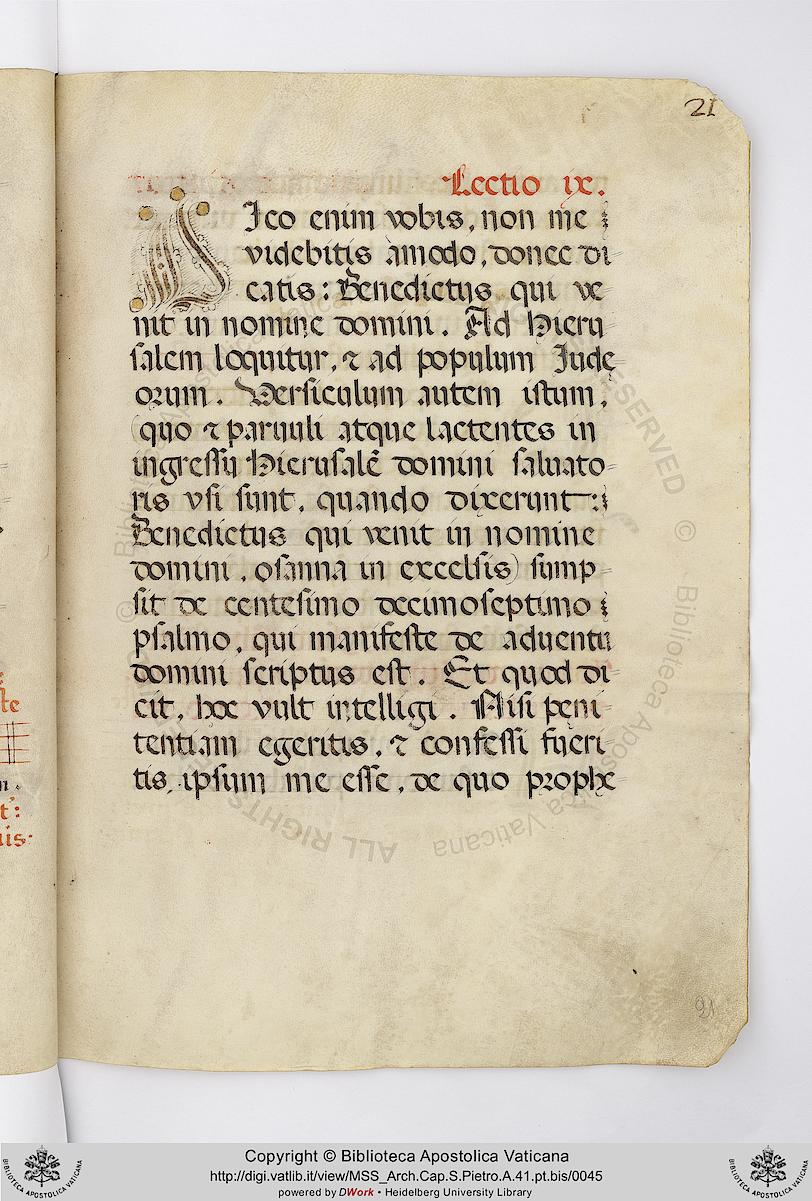 21
Lectio ix.
DIco enim vobis, non me
videbitis amodo, donec di
catis: Benedictus qui ve
nit in nomine domini. Ad Hieru
salem loquitur, ⁊ ad populum Jude
orum. Versiculum autem istum,
(quo ⁊ paruuli atque lactentes in
ingressu Hierusalē domini saluato
ris vsi sunt, quando dixerunt:
Benedictus qui venit in nomine
domini, osanna in excelsis) sump
sit de centesimo decimoseptimo
psalmo, qui manifeste de aduentu
domini scriptus est. Et quod di
cit, hoc vult intelligi. Nisi peni
tentiam egeritis, ⁊ confessi fueri
tis, ipsum me esse, de quo prophe
21
ste
t':
uis.
© Biblioteca Apostolica Vaticana
ALL RIGHTS RESERVED
Copyright © Biblioteca Apostolica Vaticana
http://digi.vatlib.it/view/MSS_Arch.Cap.S.Pietro.A.41.pt.bis/0045
powered by DWork • Heidelberg University Library
BIBLIOTECA APOSTOLICA VATICANA
BIBLIOTECA APOSTOLICA VATICANA